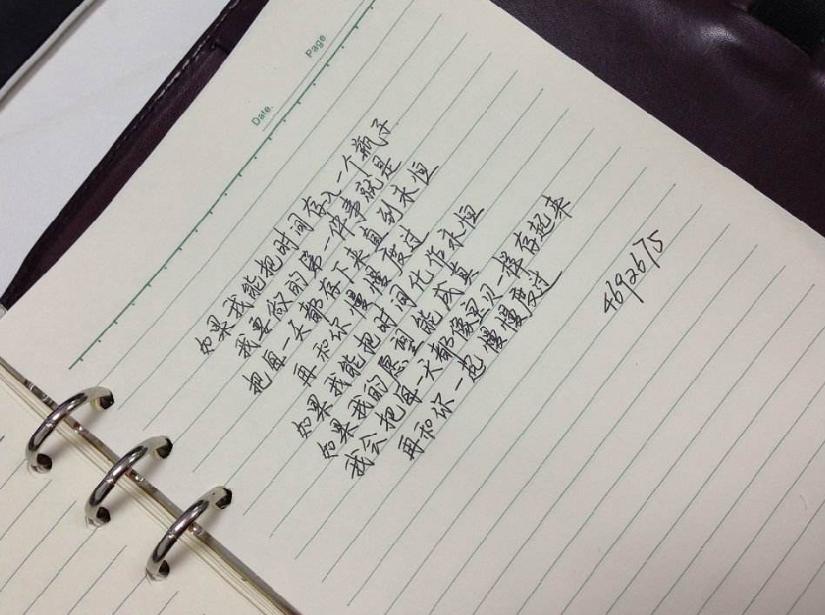 Date.
Page
如果我能把时间存入一个瓶子
我要做的第一件事就是
把每一天都存下来直到永恒
再和你慢慢度过
如果我能把时间化作永恒
如果我的愿望能成真
我会把每一天都像宝贝一样存起来
再和你一起慢慢度过
4692675